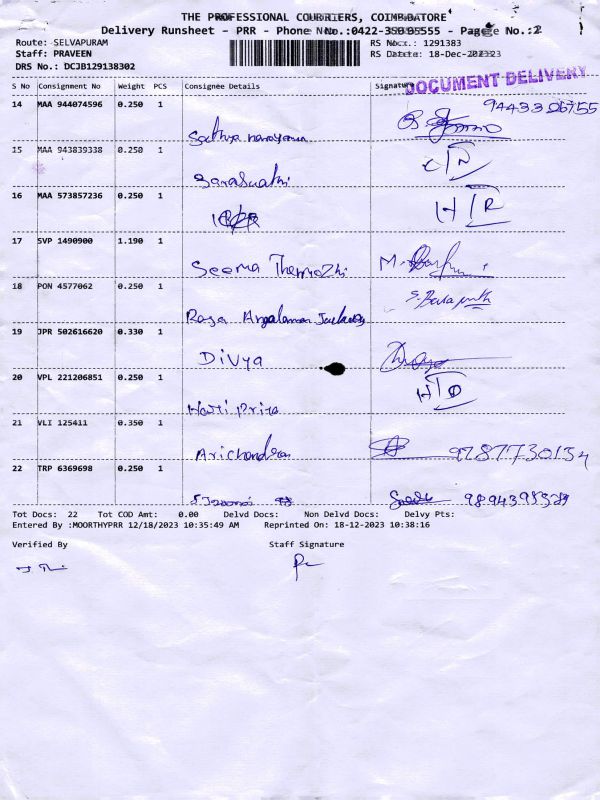 THE PROFESSIONAL COURRIERS, COIMBATORE
Delivery Runsheet - PRR - Phone No.:0422- - Page No.:2
Route: SELVAPURAM
RS No.: 1291383
Staff: PRAVEEN
RS Date: 18-Dec-2023
DRS No.: DCJB129138302
DOCUMENT DELIVERY
S No Consignment No Weight PCS Consignee Details Signature
14 MAA 944074596 0.250 1 Sathya narayanan
15 MAA 943839338 0.250 1 Saraswathi
16 MAA 573857236 0.250 1 HTR
17 SVP 1490900 1.190 1 Seema Thenmozhi M.
18 PON 4577062 0.250 1 Raja Angalamman
19 JPR 502616620 0.330 1 Divya
20 VPL 221206851 0.250 1 Hari Priya
21 VLI 125411 0.350 1 Arichandran 9787730154
22 TRP 6369698 0.250 1
Tot Docs: 22 Tot COD Amt: 0.00 Delvd Docs: Non Delvd Docs: Delvy Pts:
Entered By :MOORTHYPRR 12/18/2023 10:35:49 AM Reprinted On: 18-12-2023 10:38:16
Verified By Staff Signature